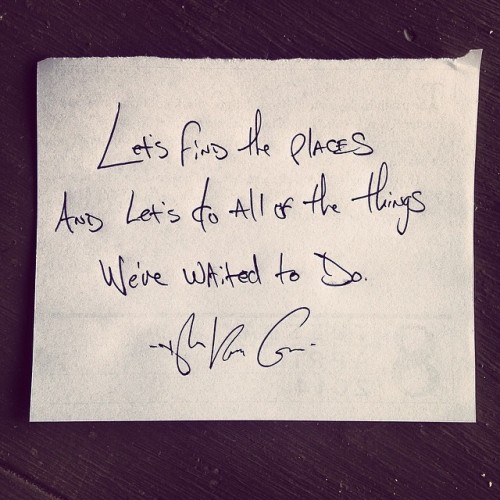 Let's find the places
And let's do all of the things
We've waited to do.